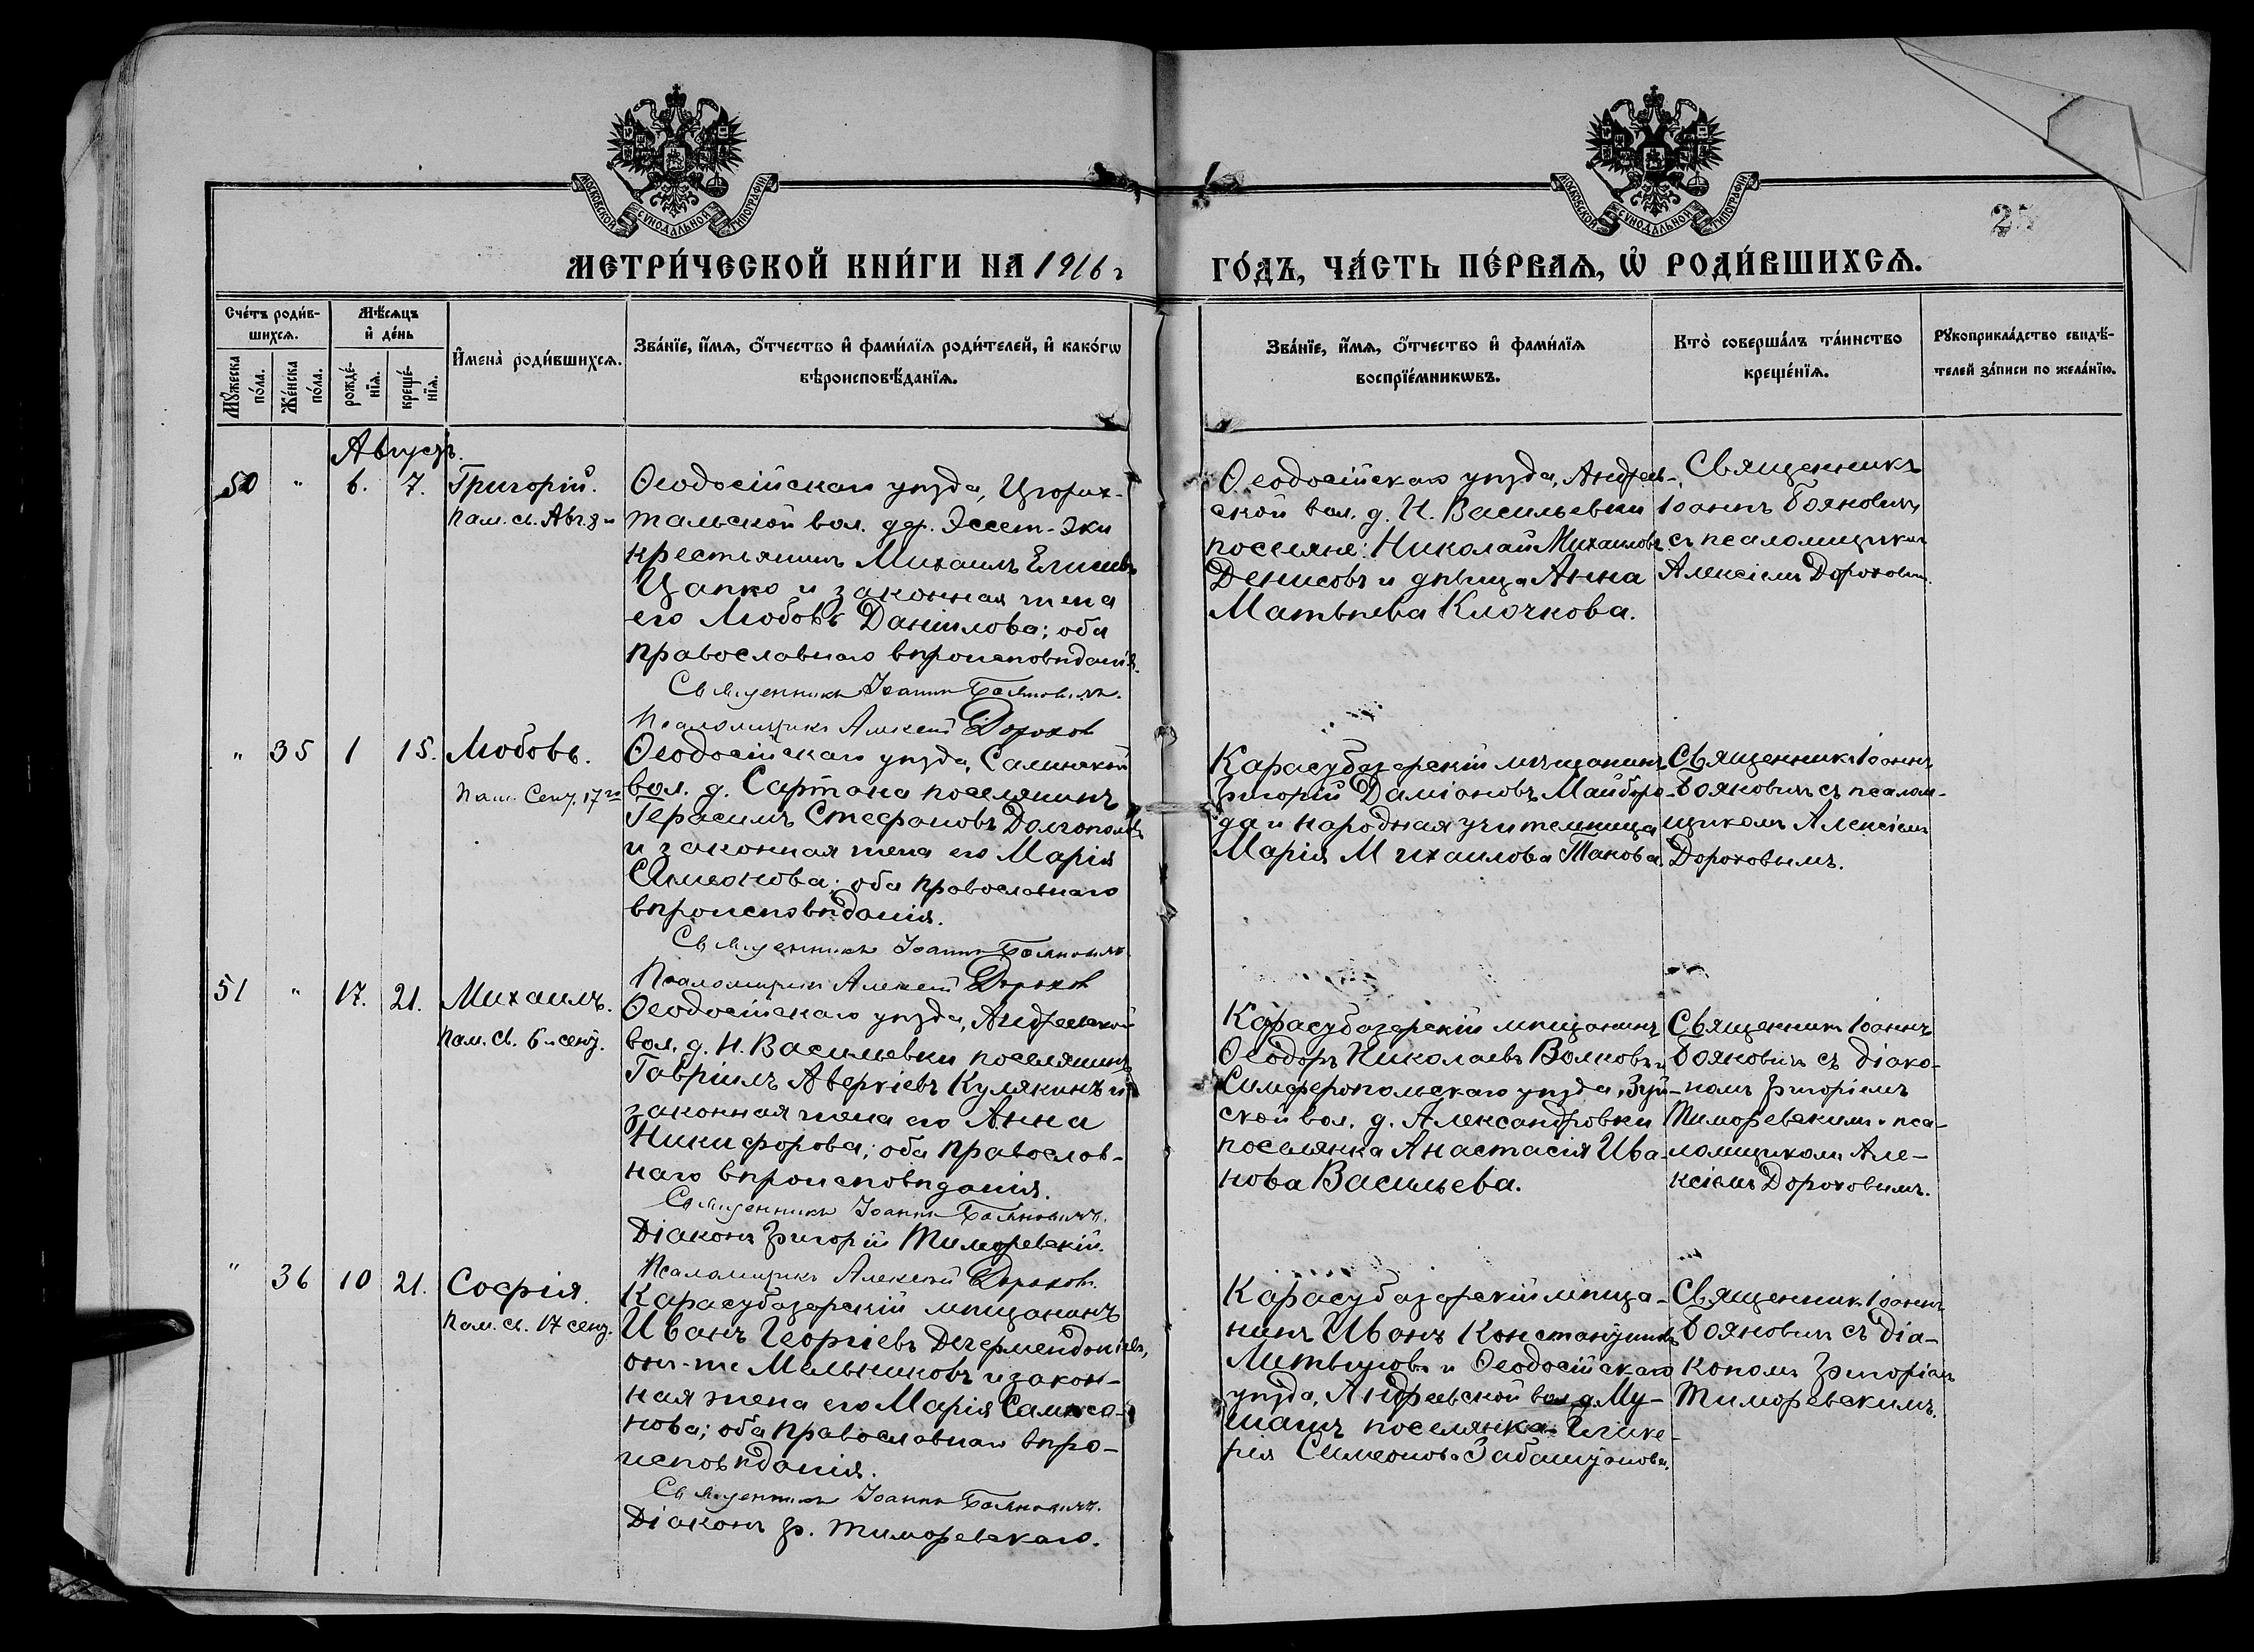 МОСКОВСКОЙ СУНОДАЛЬНОЙ ТИПОГРАФІИ
МОСКОВСКОЙ СУНОДАЛЬНОЙ ТИПОГРАФІИ
25
МЕТРИ́ЧЕСКОЙ КНИ́ГИ НА 1916 г
ГО́ДЪ, ЧА́СТЬ ПЕ́РВАѦ, Ѡ҆ РОДИ́ВШИХСѦ.
Сче́тъ роди́в-
шихсѧ.
Мꙋ́жеска по́ла.
Же́нска по́ла.
Мѣ́сѧцъ
и҆ де́нь
рожде́-нїѧ.
креще́-нїѧ.
И҆мена̀ роди́вшихсѧ.
Зва́нїе, и҆́мѧ, ѻ҆́тчество и҆ фами́лїѧ роди́телей, и҆ како́гѡ
вѣроисповѣ́данїѧ.
Зва́нїе, и҆́мѧ, ѻ҆́тчество и҆ фами́лїѧ
воспрїе́мникѡвъ.
Кто̀ соверша́лъ та́инство
креще́нїѧ.
Рꙋкоприкла́дство свидѣ́-
телей за́писи по жела́нїю.
Августъ.
50 " 6. 7. Григорій.
Пам. св. Авг. 8
Ѳеодосійскаго уѣзда, Цюрих-
тальской вол. дер. Эссет-Эки
крестьянинъ Михаилъ
Цапко и законная жена
его Любовь Даніилова; оба
православнаго вѣроисповѣданія.
Священникъ Іоаннъ Бояновичъ.
Псаломщикъ Алексій Дорохов
Ѳеодосійскаго уѣзда, Андреев-
ской вол. д. Н. Васильевки
поселяне: Николай Михаиловъ
Денисовъ и дѣвица Анна
Матвѣева Клочкова.
Священникъ
Іоаннъ Бояновичъ
съ псаломщикомъ
Алексіемъ Дороховымъ.
" 35 1 15. Любовь.
Пам. Сент. 17го
Ѳеодосійскаго уѣзда, Салынской
вол. д. Сартана поселянинъ
Герасимъ Стефановъ Долгополовъ
и законная жена его Марія
Симеонова; оба православнаго
вѣроисповѣданія.
Священникъ Іоаннъ Бояновичъ
Псаломщикъ Алексій Дорохов
Карасубазарскій мѣщанинъ
Григорій Даміановъ Майборо-
да и народная учительница
Марія Михаилова Такова
Священникъ Іоаннъ
Бояновичъ съ псалом-
щикомъ Алексіемъ
Дороховымъ.
51 " 17. 21. Михаилъ.
Пам. св. 6 сент.
Ѳеодосійскаго уѣзда, Андреевской
вол. д. Н. Васильевки поселянинъ
Гавріилъ Аверкіевъ Кулякинъ и
законная жена его Анна
Никифорова; оба православ-
наго вѣроисповѣданія.
Священникъ Іоаннъ Бояновичъ.
Діаконъ Григорій Тиморевскій.
Псаломщикъ Алексій Дорохов.
Карасубазарскій мѣщанинъ
Ѳеодоръ Николаевъ Волковъ и
Симферопольскаго уѣзда, Зуй-
ской вол. д. Александровки
поселянка Анастасія Ива-
нова Васильева.
Священникъ Іоаннъ
Бояновичъ съ діако-
номъ Григоріемъ
Тиморевскимъ и пса-
ломщикомъ Але-
ксіемъ Дороховымъ.
" 36 10 21. Софія.
Пам. св. 17 сент.
Карасубазарскій мѣщанинъ
Иванъ Георгіевъ
онъ-же Мельниковъ и закон-
ная жена его Марія
нова; оба православнаго вѣро-
исповѣданія.
Священникъ Іоаннъ Бояновичъ.
Діаконъ Гр. Тиморевскаго.
Карасубазарскій мѣща-
нинъ Иванъ Константиновъ
Литвиновъ и Ѳеодосійскаго
уѣзда, Андреевской вол. д. Му-
шашъ поселянка Глике-
рія Симеонова
Священникъ Іоаннъ
Бояновичъ съ діа-
кономъ Григоріемъ
Тиморевскимъ.